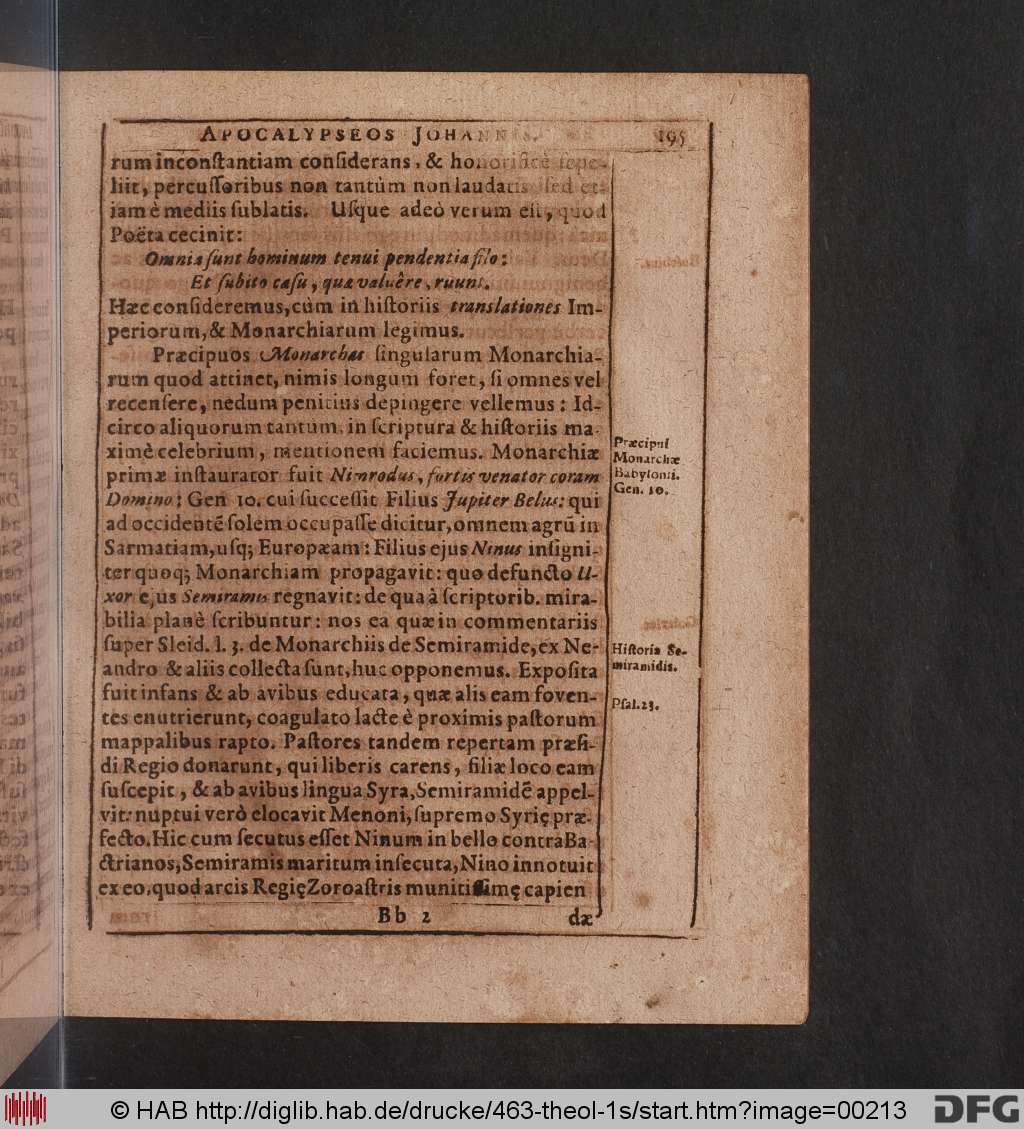 APOCALYPSEOS JOHANNIS. 195
rum inconſtantiam conſiderans, & honorificè ſepe-
liit, percuſſoribus non tantùm non laudatis ſed et-
iam è mediis ſublatis. Uſque adeò verum eſt, quod
Poëta cecinit:
Omnia ſunt hominum tenui pendentia filo:
Et ſubito caſu, quæ valuêre, ruunt.
Hæc conſideremus, cùm in hiſtoriis translationes Im-
periorum, & Monarchiarum legimus.
Præcipuos Monarchas ſingularum Monarchia-
rum quod attinet, nimis longum foret, ſi omnes vel
recenſere, nedum penitius depingere vellemus: Id-
circo aliquorum tantum, in ſcriptura & hiſtoriis ma-
ximè celebrium, mentionem faciemus. Monarchiæ
primæ inſtaurator fuit Nimrodus, fortis venator coram
Domino: Gen 10. cui ſucceſſit Filius Jupiter Belus: qui
ad occidentē ſolem occupaſſe dicitur, omnem agrū in
Sarmatiam, uſq; Europæam: Filius ejus Ninus inſigni-
ter quoq; Monarchiam propagavit: quo defuncto U-
xor ejus Semiramis regnavit: de qua à ſcriptorib. mira-
bilia planè ſcribuntur: nos ea quæ in commentariis
ſuper Sleid. l. 3. de Monarchiis de Semiramide, ex Ne-
andro & aliis collecta ſunt, huc opponemus. Expoſita
fuit infans & ab avibus educata, quæ alis eam foven-
tes enutrierunt, coagulato lacte è proximis paſtorum
mappalibus rapto. Paſtores tandem repertam præſi-
di Regio donarunt, qui liberis carens, filiæ loco eam
ſuſcepit, & ab avibus lingua Syra, Semiramidē appel-
vit: nuptui verò elocavit Menoni, ſupremo Syrię præ-
fecto. Hic cum ſecutus eſſet Ninum in bello contra Ba-
ctrianos, Semiramis maritum inſecuta, Nino innotuit
ex eo, quod arcis Regię Zoroaſtris munitiſſimę capien
Bb 2 dæ
Præcipui
Monarchæ
Babylonii.
Gen. 10.
Hiſtoria Se-
miramidis.
Pſal. 23.
© HAB http://diglib.hab.de/drucke/463-theol-1s/start.htm?image=00213 DFG